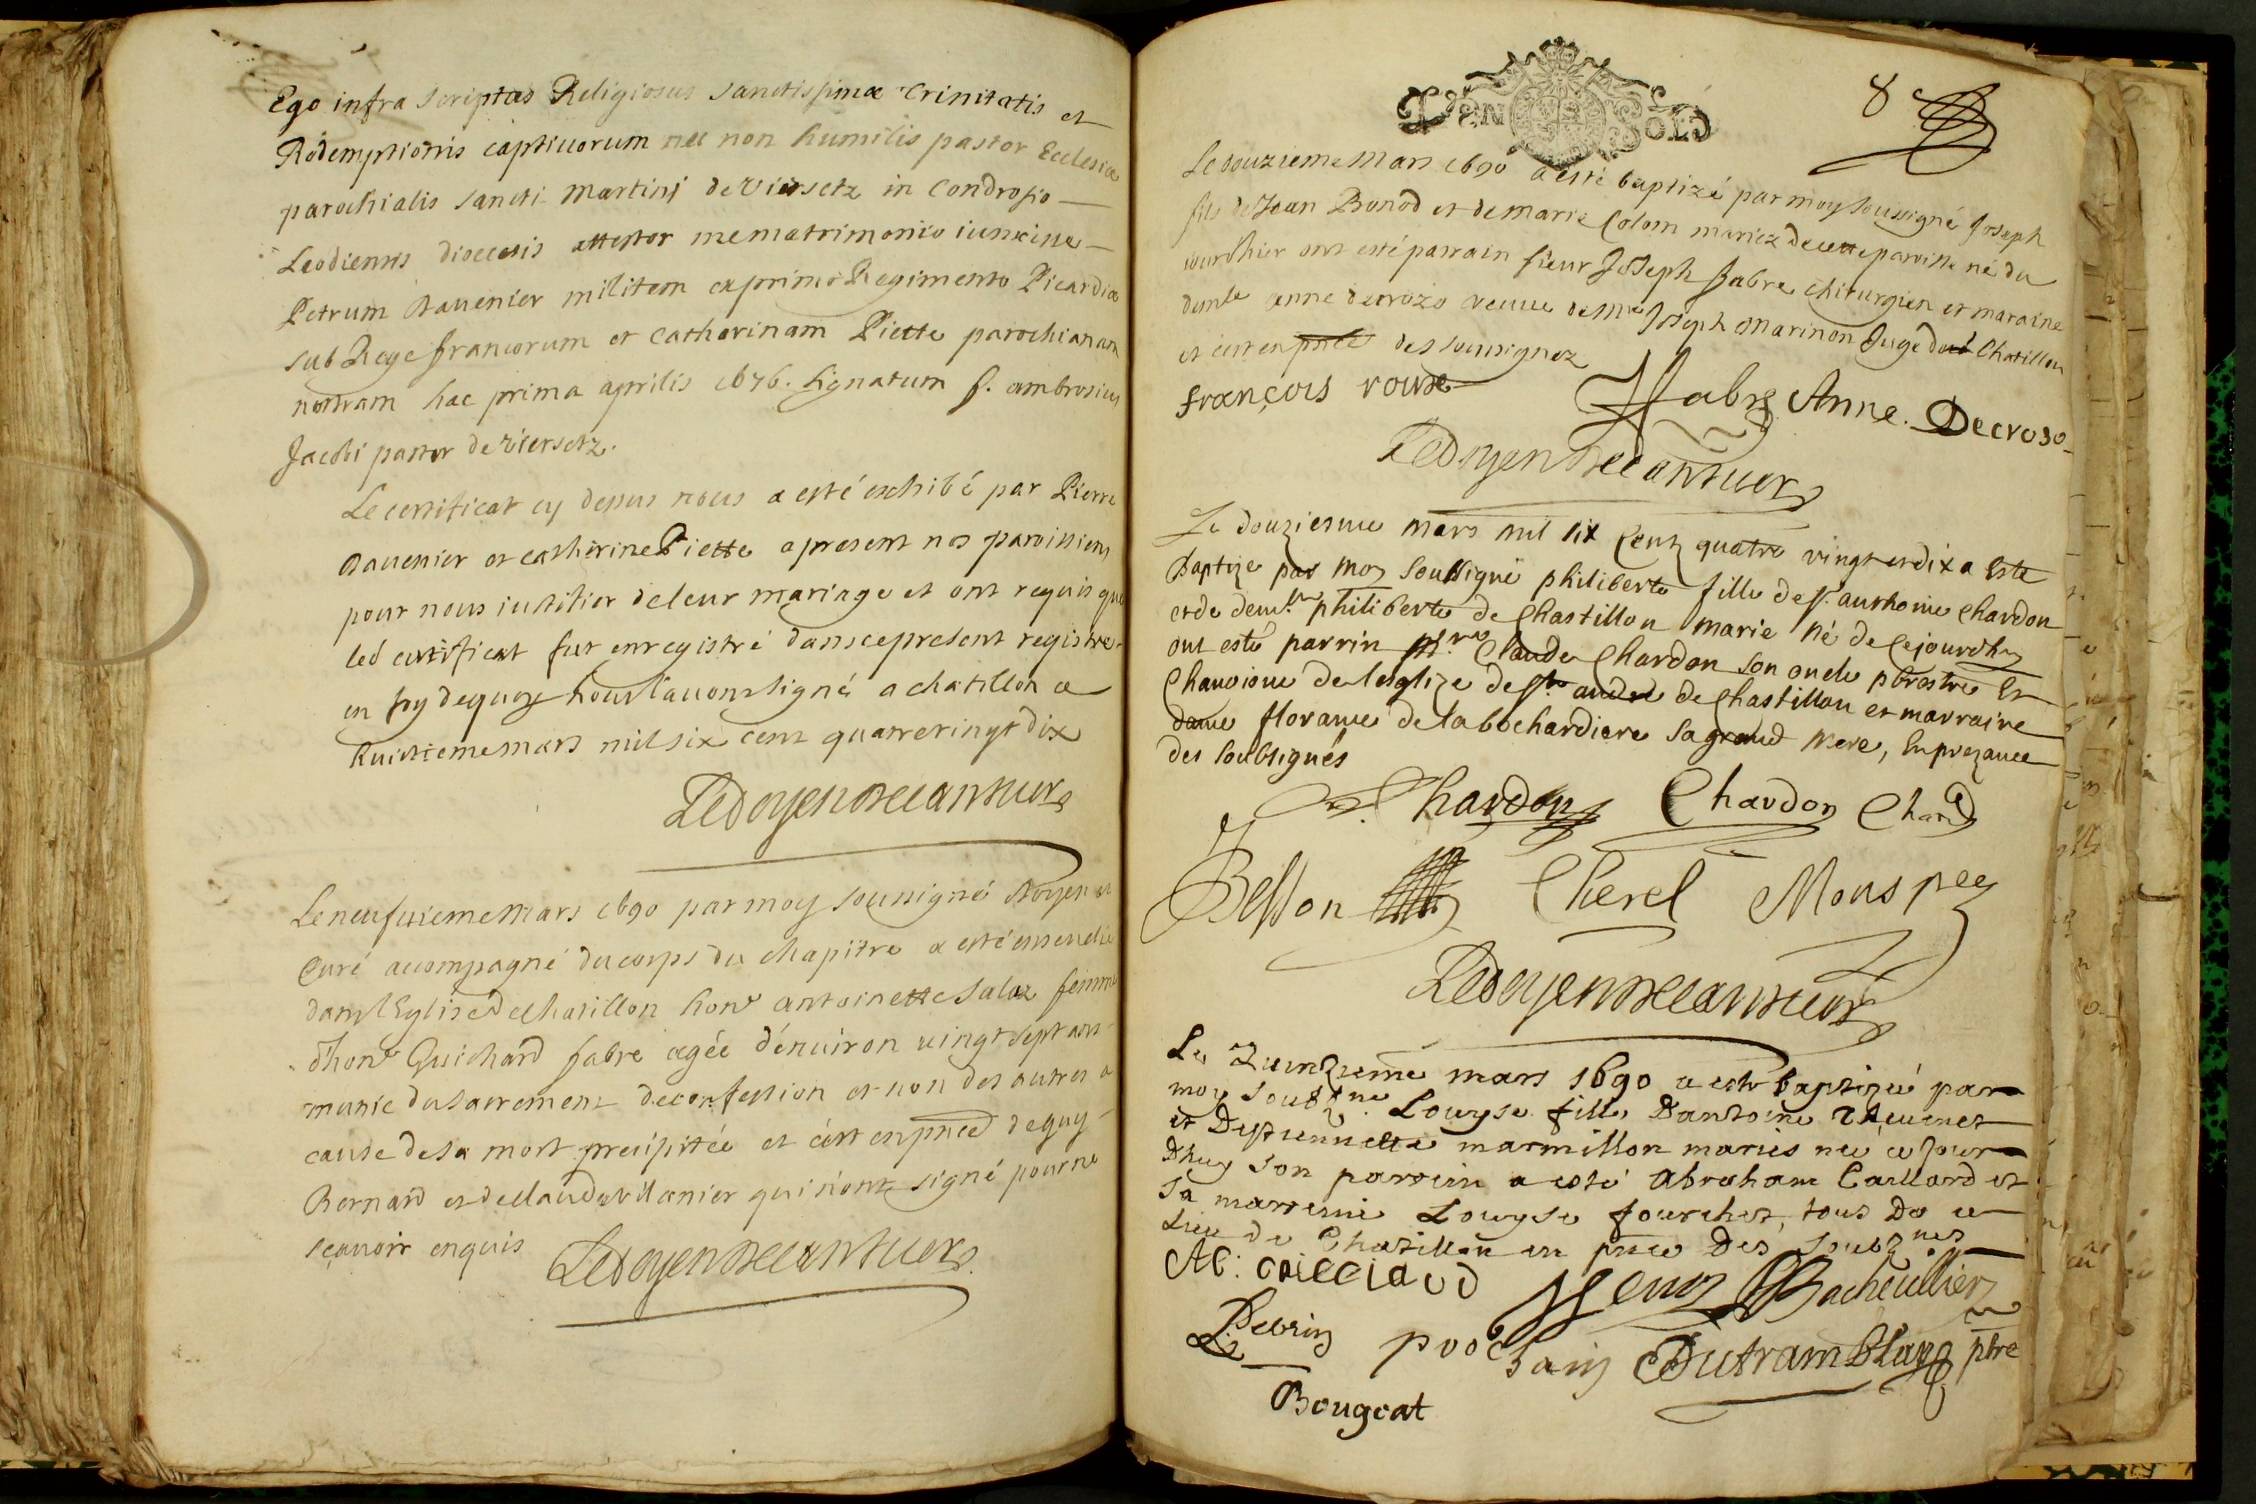 Ego infra scriptus Religiosus sanctissimæ trinitatis et
Rédemptionis captivorum nec non humilis pastor Ecclesiæ
parochialis sancti Martini de Viersetz in Condrosio
Leodiensis diocesis attestor me matrimonio iunxisse
Petrum Davenier militem ex primo Regimento Picardiæ
sub Rege francorum et Catharinam Piette parochianam
nostram hac prima aprilis 1676. signatum f. ambrosius
Jacobi pastor de Viersetz.
Le certificat cy dessus nous a esté exhibé par Pierre
Davenier et catherine Piette a present nos paroissiens
pour nous iustifier de leur mariage et ont requis que
led certificat fut enregistré dans ce present registre
en foy de quoy nous l'avons signé a chatillon ce
huictieme mars mil six cent quatre vingt dix
Le neufvieme Mars 1690 par moy soussigné doyen et
Curé accompagné du corps du chapitre a esté ensevelie
dans l'Eglise de Chatillon hon^e antoinette Salaz femme
d'hon^e Guichard fabre agée d'environ vingt sept ans
munie du sacrement de confession et non des autres a
cause de sa mort precipitée et cest en pnce de guy
Bernard et de Claude vilanier qui n'ont signé pour ne
sçavoir enquis
8
DEN SOLS
Le douzieme Mars 1690 a esté baptizé par moy soussigné Joseph
fils de Jean Bonod et de Marie Colom mariez de cette paroisse né du
jourdhier ont esté parrain sieur Joseph fabre chirurgien et maraine
damle anne decrozo veuve de Mre Joseph Marinon Juge de Chatillon
et cest en pnce des soussignez
françois rouse Jfabre Anne. Decroso
Le douziesme mars mil six Cent quatre vingt et dix a Este
Baptize par moy Soussigné philiberte fille de sr. anthoine Chardon
et de demlle philiberte de Chastillon marie né de Cejourdhuy
ont esté parrin Mre Claude Chardon son oncle prestre Et
Chanoine de leglize de St andre de Chastillon et marraine
dame florance de la bochardiere sa grand Mere, En prezance
des soubsignés
Chardon Chardon Chard
Besson Cherel Monspey
Le quinzieme mars 1690 a este baptizée par
moy soubzne Louyse fille D'antoine Thevenet
et marmillon mariés née ce jour
Dhuy son parrein a esté Abraham Caillard et
sa marreine Louyse fourchet, tous de ce
Lieu de Chatillon en pnce Des soubznes
AB: cailliaud Bacheullier
Pebrin Dutramblay pbre
Bougeat